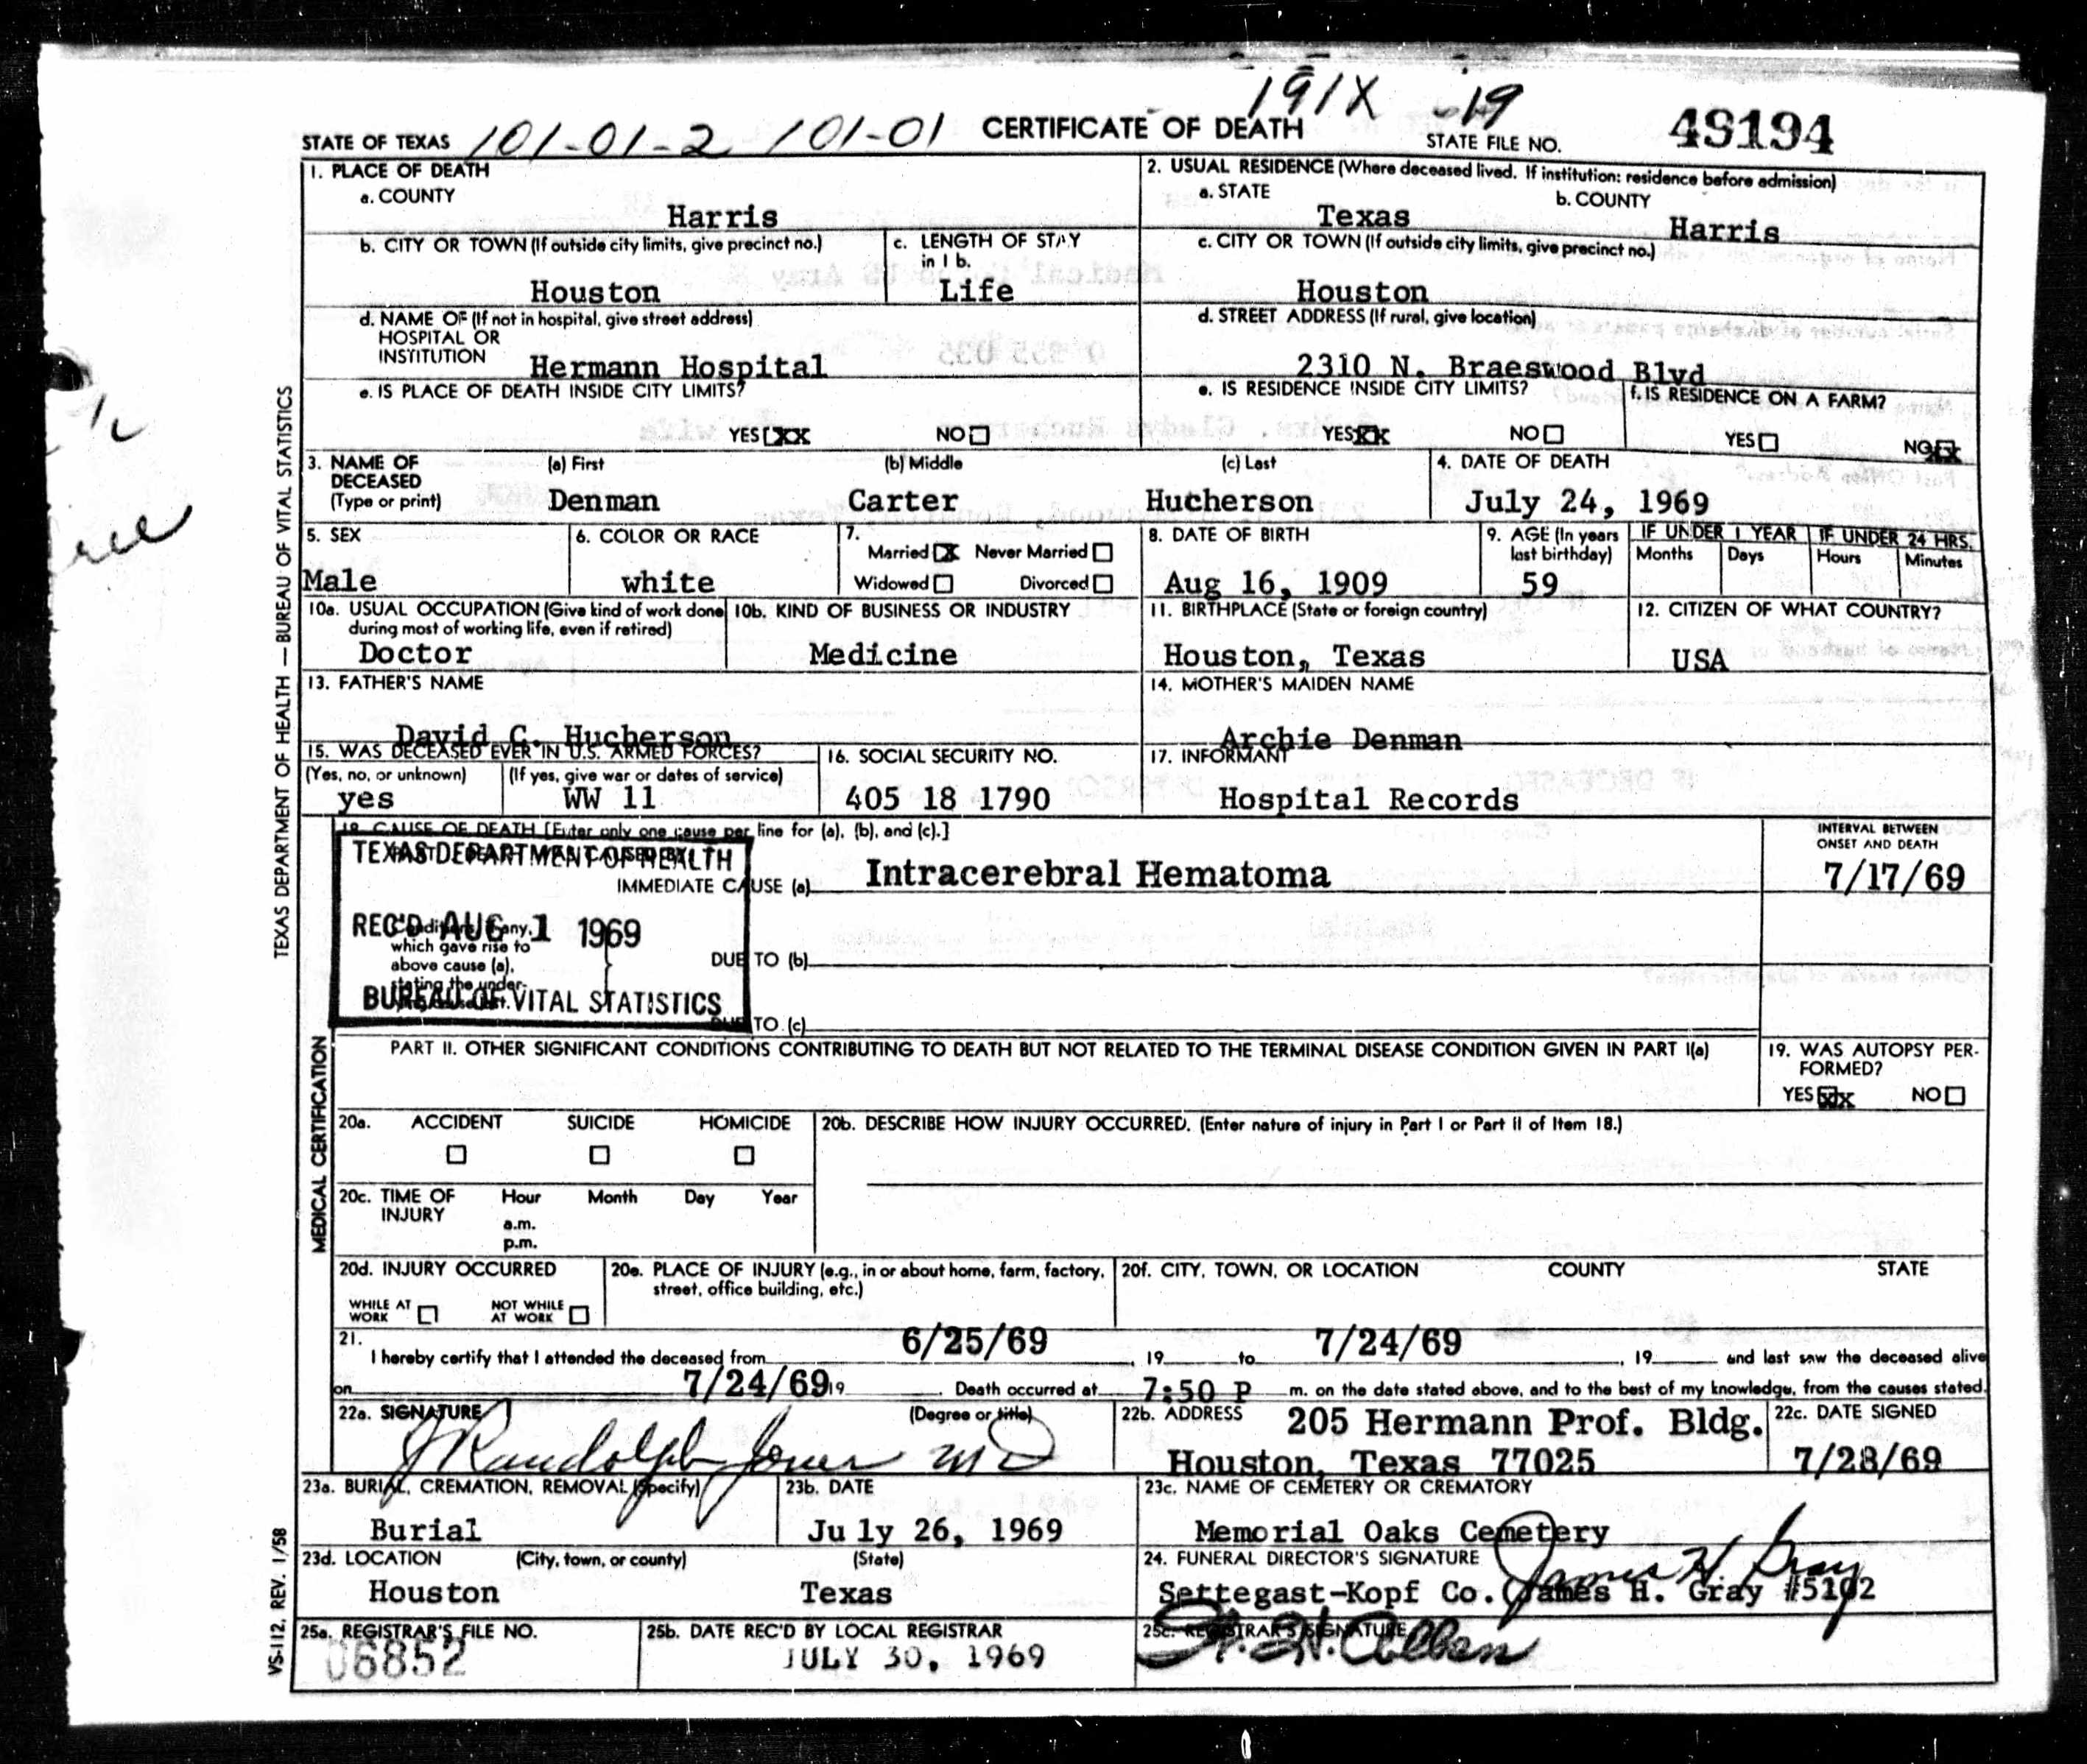 191X -19
STATE OF TEXAS 101-01-2 101-01 CERTIFICATE OF DEATH STATE FILE NO. 49194
1. PLACE OF DEATH
a. COUNTY
Harris
2. USUAL RESIDENCE (Where deceased lived. If institution: residence before admission)
a. STATE Texas
b. COUNTY Harris
b. CITY OR TOWN (If outside city limits, give precinct no.)
Houston
c. LENGTH OF STAY
in 1 b.
Life
c. CITY OR TOWN (If outside city limits, give precinct no.)
Houston
d. NAME OF (If not in hospital, give street address)
HOSPITAL OR
INSTITUTION Hermann Hospital
d. STREET ADDRESS (If rural, give location)
2310 N. Braeswood Blvd
e. IS PLACE OF DEATH INSIDE CITY LIMITS?
YES XX NO
e. IS RESIDENCE INSIDE CITY LIMITS?
YES XX NO
f. IS RESIDENCE ON A FARM?
YES NO XX
3. NAME OF
DECEASED
(Type or print)
(a) First (b) Middle (c) Last
Denman Carter Hucherson
4. DATE OF DEATH
July 24, 1969
5. SEX
Male
6. COLOR OR RACE
white
7.
Married X Never Married
Widowed Divorced
8. DATE OF BIRTH
Aug 16, 1909
9. AGE (In years
last birthday)
59
IF UNDER 1 YEAR
Months Days
IF UNDER 24 HRS.
Hours Minutes
10a. USUAL OCCUPATION (Give kind of work done
during most of working life, even if retired)
Doctor
10b. KIND OF BUSINESS OR INDUSTRY
Medicine
11. BIRTHPLACE (State or foreign country)
Houston, Texas
12. CITIZEN OF WHAT COUNTRY?
USA
13. FATHER'S NAME
David C. Hucherson
14. MOTHER'S MAIDEN NAME
Archie Denman
15. WAS DECEASED EVER IN U.S. ARMED FORCES?
(Yes, no, or unknown) (If yes, give war or dates of service)
yes WW 11
16. SOCIAL SECURITY NO.
405 18 1790
17. INFORMANT
Hospital Records
18. CAUSE OF DEATH [Enter only one cause per line for (a), (b), and (c).]
TEXAS DEPARTMENT OF HEALTH
REC'D AUG 1 1969
BUREAU OF VITAL STATISTICS
IMMEDIATE CAUSE (a) Intracerebral Hematoma
INTERVAL BETWEEN
ONSET AND DEATH
7/17/69
Conditions, if any,
which gave rise to
above cause (a),
stating the under-
DUE TO (b)
DUE TO (c)
PART II. OTHER SIGNIFICANT CONDITIONS CONTRIBUTING TO DEATH BUT NOT RELATED TO THE TERMINAL DISEASE CONDITION GIVEN IN PART I(a)
19. WAS AUTOPSY PER-
FORMED?
YES XX NO
20a. ACCIDENT SUICIDE HOMICIDE
20b. DESCRIBE HOW INJURY OCCURRED. (Enter nature of injury in Part I or Part II of Item 18.)
20c. TIME OF
INJURY
Hour Month Day Year
a.m.
p.m.
20d. INJURY OCCURRED
WHILE AT
WORK
NOT WHILE
AT WORK
20e. PLACE OF INJURY (e.g., in or about home, farm, factory,
street, office building, etc.)
20f. CITY, TOWN, OR LOCATION COUNTY STATE
21.
I hereby certify that I attended the deceased from 6/25/69, 19 to 7/24/69, 19 and last saw the deceased alive
on 7/24/69 19 . Death occurred at 7:50 P m. on the date stated above, and to the best of my knowledge, from the causes stated.
22a. SIGNATURE (Degree or title)
J Randolph Jones MD
22b. ADDRESS 205 Hermann Prof. Bldg.
Houston, Texas 77025
22c. DATE SIGNED
7/28/69
23a. BURIAL, CREMATION, REMOVAL (Specify)
Burial
23b. DATE
July 26, 1969
23c. NAME OF CEMETERY OR CREMATORY
Memorial Oaks Cemetery
23d. LOCATION (City, town, or county) (State)
Houston Texas
24. FUNERAL DIRECTOR'S SIGNATURE James H Gray
Settegast-Kopf Co. James H. Gray #5102
25a. REGISTRAR'S FILE NO.
06852
25b. DATE REC'D BY LOCAL REGISTRAR
JULY 30, 1969
25c. REGISTRAR'S SIGNATURE
TEXAS DEPARTMENT OF HEALTH — BUREAU OF VITAL STATISTICS
MEDICAL CERTIFICATION
VS-112, REV. 1/58